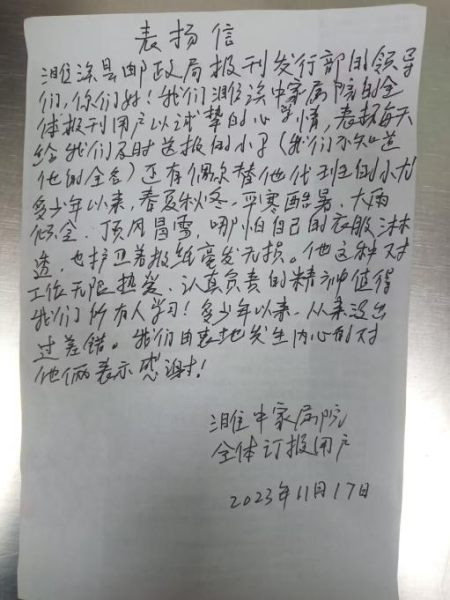 表扬信
濉溪县邮政局报刊发行部的领导
们,你们好!我们濉溪中家属院的全
体报刊用户以诚挚的心情,表扬每天
给我们及时送报的小子(我们不知道
他的全名)还有偶尔替他代班的小
多少年以来,春夏秋冬、严寒酷暑、大雨
倾盆、顶风冒雪,哪怕自己的衣服淋
透,也护卫着报纸毫发无损。他这种对
工作无限热爱、认真负责的精神值得
我们所有人学习!多少年以来,从未没出
过差错。我们由衷地发生内心的对
他俩表示感谢!
濉中家属院
全体订报用户
2023年11月17日